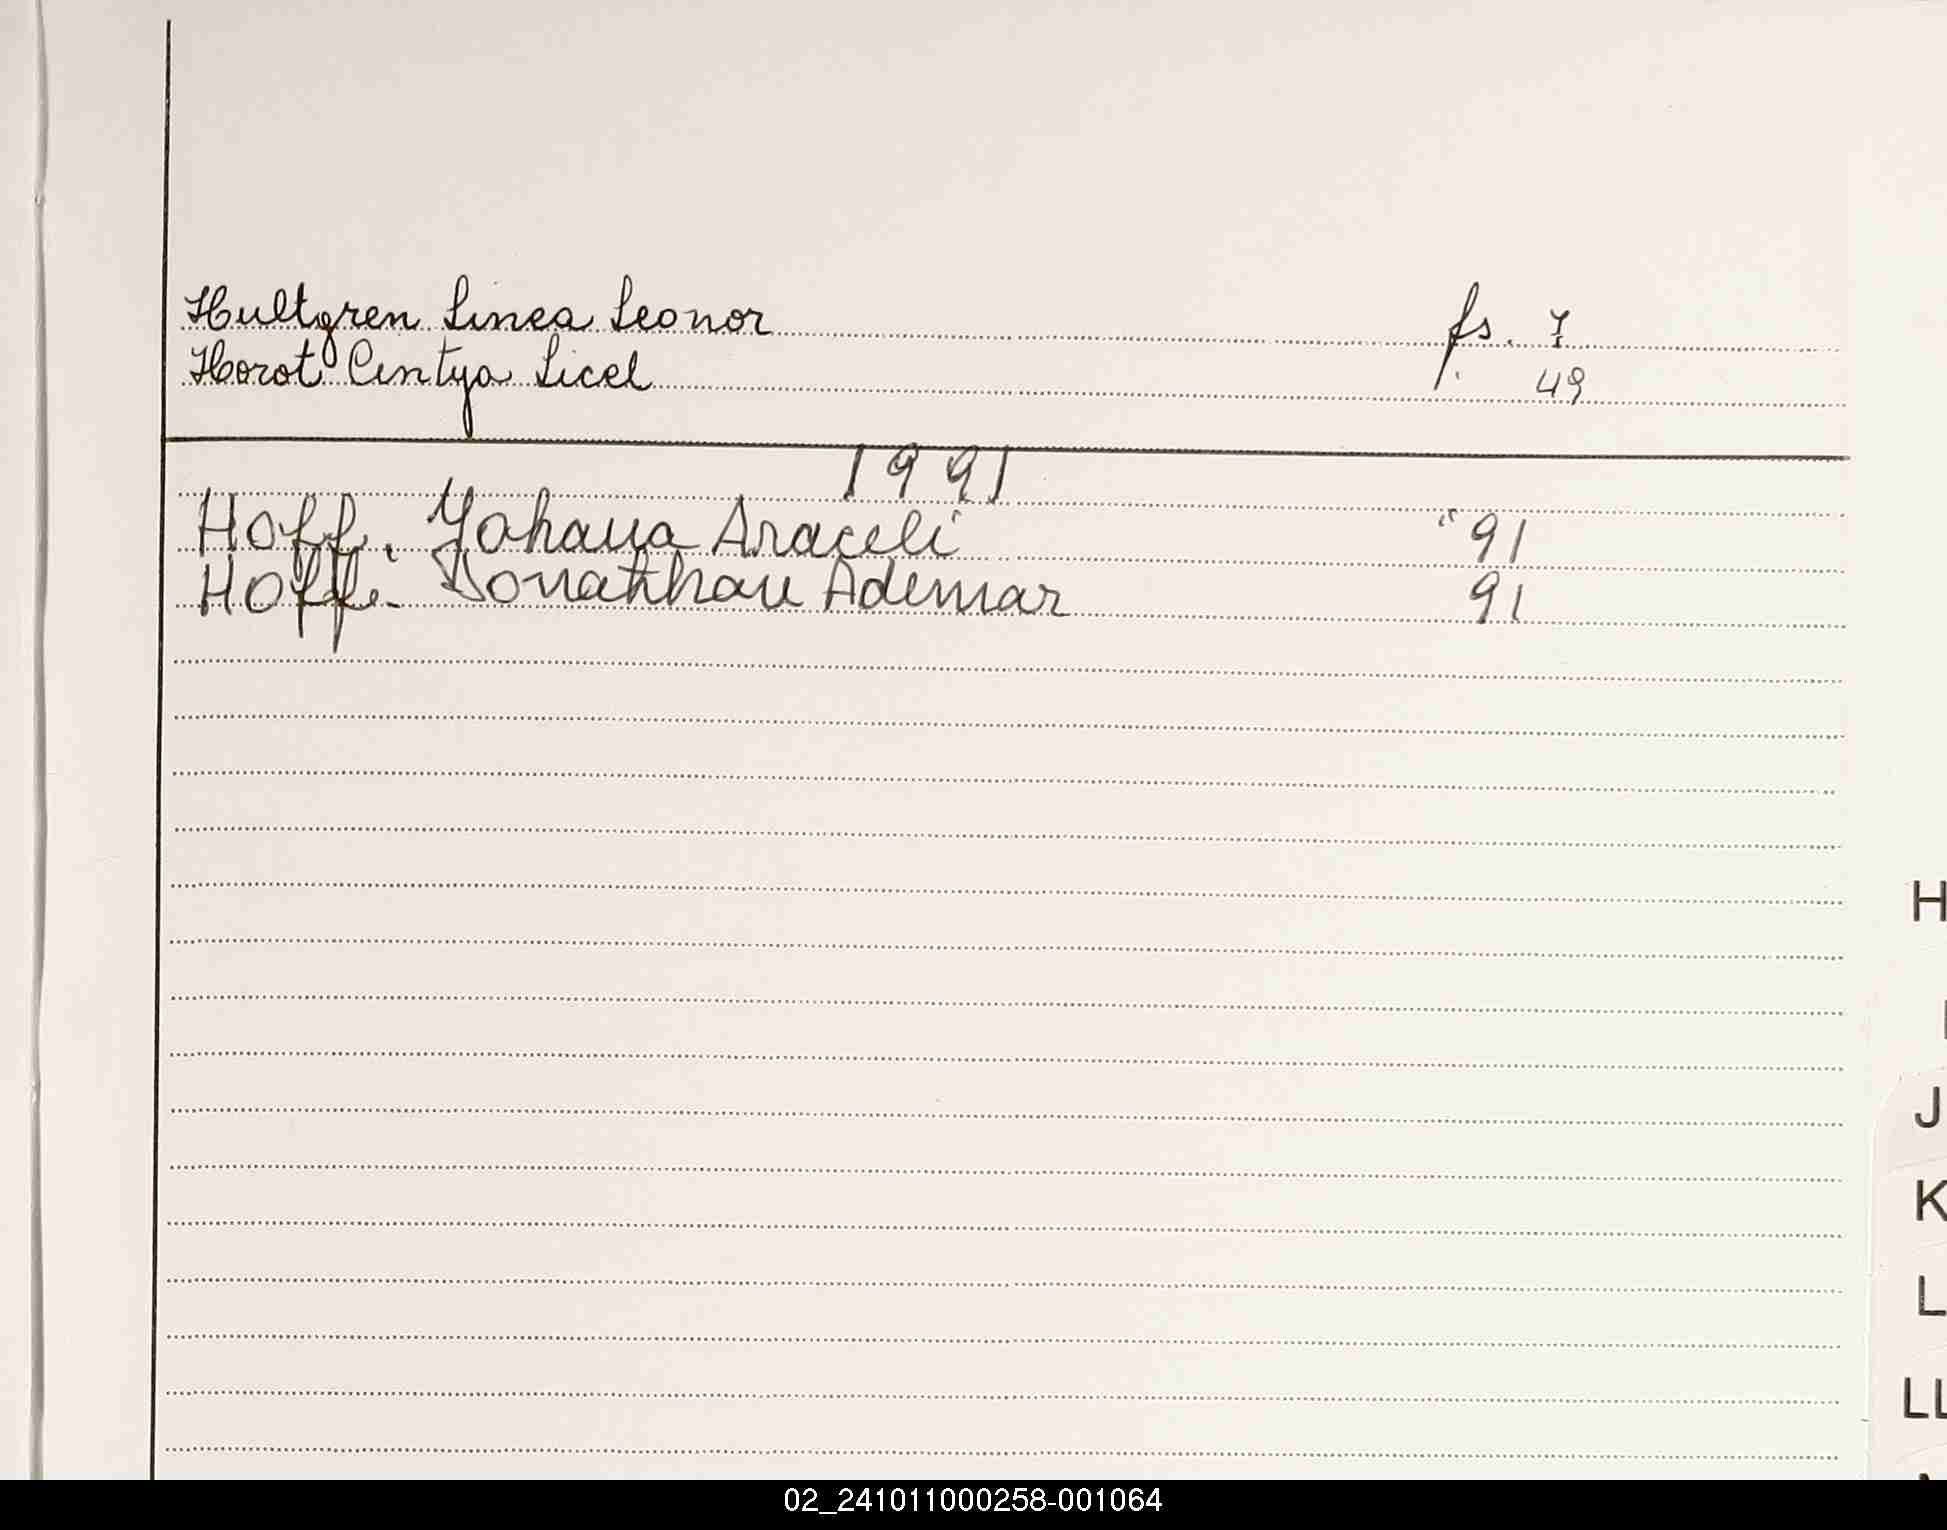 Hultgren Linea Leonor fs. 7
Horot Cintya Licel 49
1991
Hoff. Yohana Araceli " 91
Hoff. Jonathan Ademar 91
H
I
J
K
L
LL
02_241011000258-001064